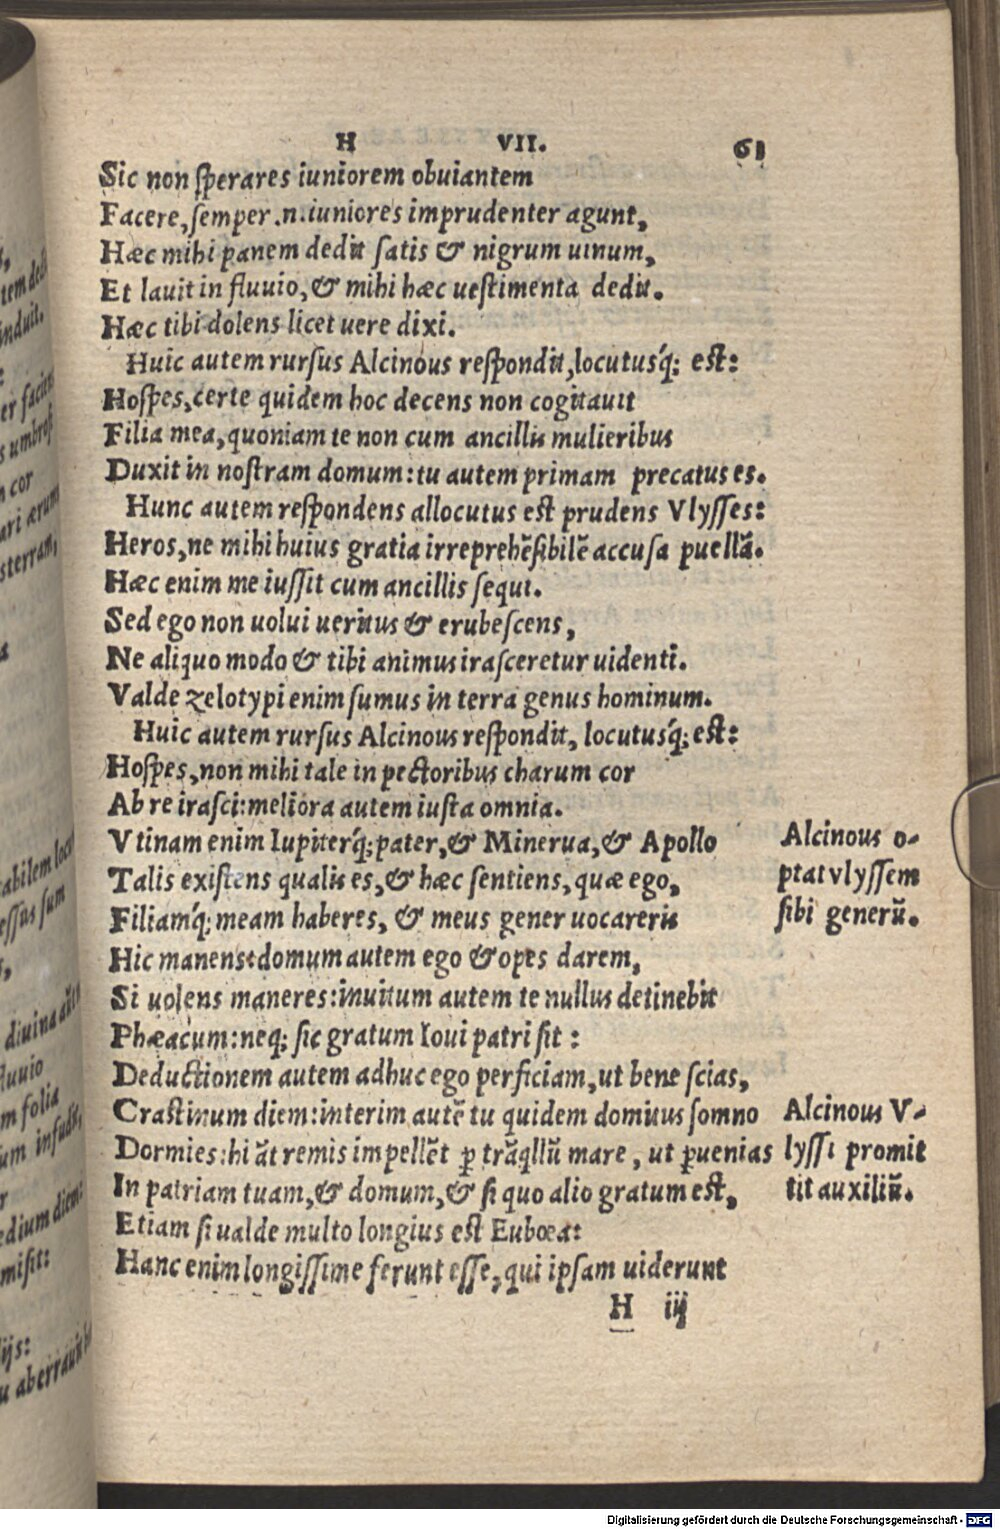 H VII. 61
Sic non ſperares iuniorem obuiantem
Facere, ſemper .n. iuniores imprudenter agunt,
Hæc mihi panem dedit ſatis & nigrum uinum,
Et lauit in fluuio, & mihi hæc ueſtimenta dedit.
Hæc tibi dolens licet uere dixi.
Huic autem rurſus Alcinous reſpondit, locutusq́; eſt:
Hoſpes, certe quidem hoc decens non cogitauit
Filia mea, quoniam te non cum ancillis mulieribus
Duxit in noſtram domum: tu autem primam precatus es.
Hunc autem reſpondens allocutus eſt prudens Vlyſſes:
Heros, ne mihi huius gratia irreprehẽſibilẽ accuſa puellã.
Hæc enim me iuſſit cum ancillis ſequi.
Sed ego non uolui ueritus & erubeſcens,
Ne aliquo modo & tibi animus iraſceretur uidenti.
Valde zelotypi enim ſumus in terra genus hominum.
Huic autem rurſus Alcinous reſpondit, locutusq́; eſt:
Hoſpes, non mihi tale in pectoribus charum cor
Ab re iraſci: meliora autem iuſta omnia.
Vtinam enim Iupiterq́; pater, & Minerua, & Apollo
Talis exiſtens qualis es, & hæc ſentiens, quæ ego,
Filiamq́; meam haberes, & meus gener uocareris
Hic manens: domum autem ego & opes darem,
Si uolens maneres: inuitum autem te nullus detinebit
Phæacum: neq; ſic gratum Ioui patri ſit:
Deductionem autem adhuc ego perficiam, ut bene ſcias,
Craſtinum diem: interim autẽ tu quidem domitus ſomno
Dormies: hi ãt remis impellẽt ꝑ trãqllũ mare, ut ꝑuenias
In patriam tuam, & domum, & ſi quo alio gratum eſt,
Etiam ſi ualde multo longius eſt Eubœa:
Hanc enim longiſſime ferunt eſſe, qui ipſam uiderunt
H iij
Alcinous o-
ptat vlyſſem
ſibi generũ.
Alcinous V-
lyſſi promit
tit auxiliũ.
Digitalisierung gefördert durch die Deutsche Forschungsgemeinschaft - DFG